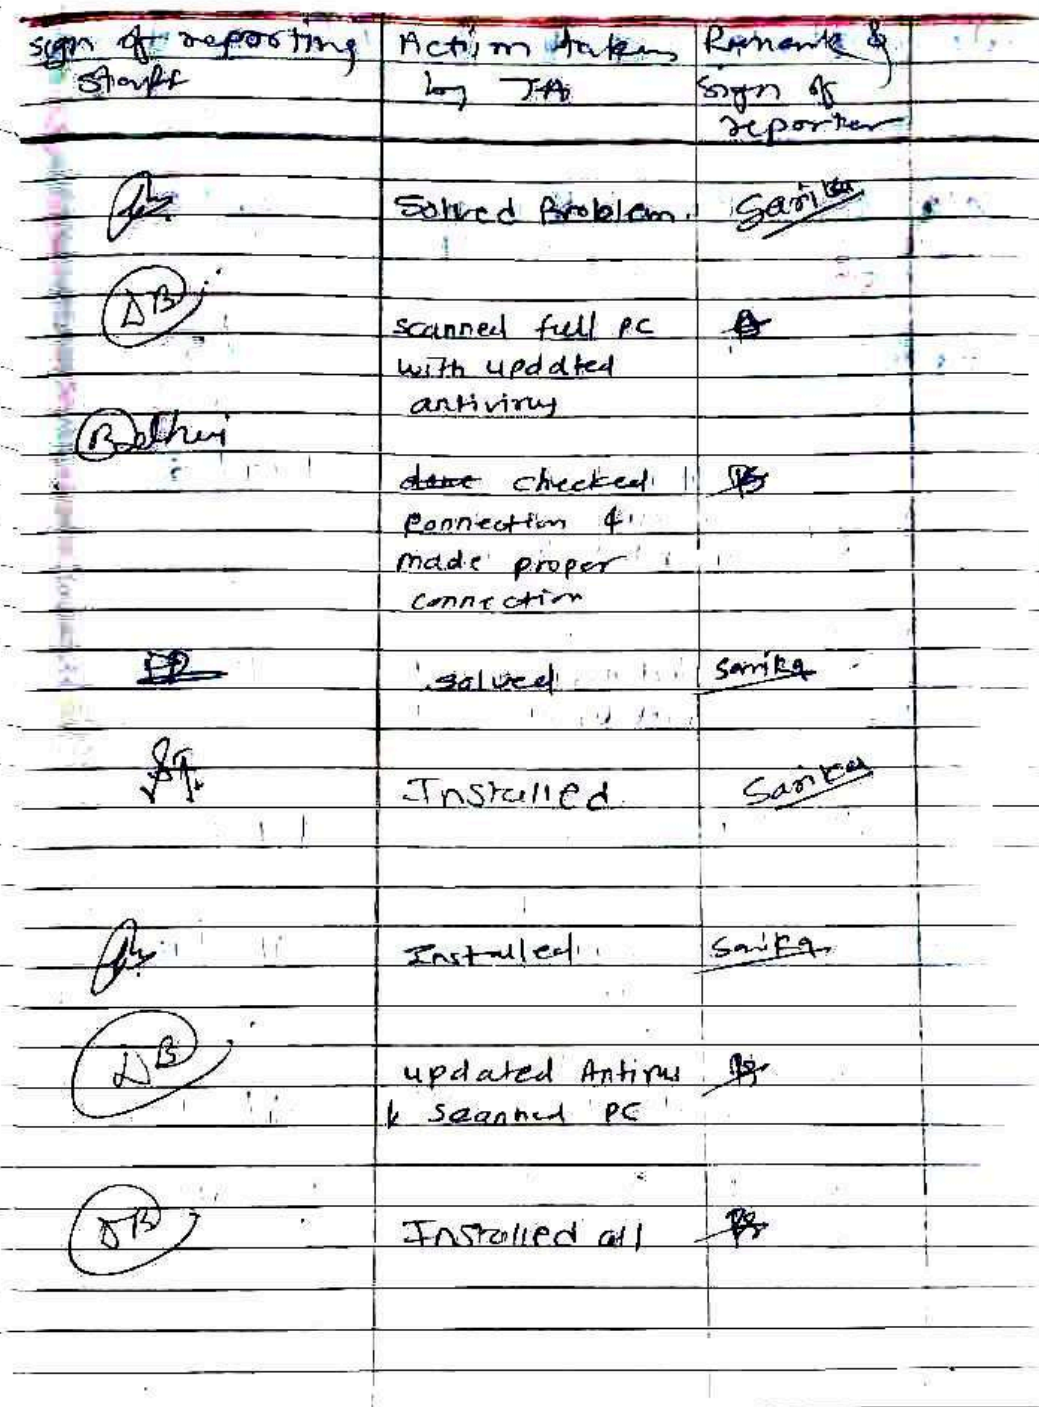 sign of reporting Action taken Remark &
staff by TA sign of
reporter
Solved Problem. Sarika
DB
scanned full PC
with updated
antivirus
done checked
connection &
made proper
connection
solved Sarika
Installed Sarika
Installed Sarika
DB
updated Antirus
& scanned PC
DB
Installed all